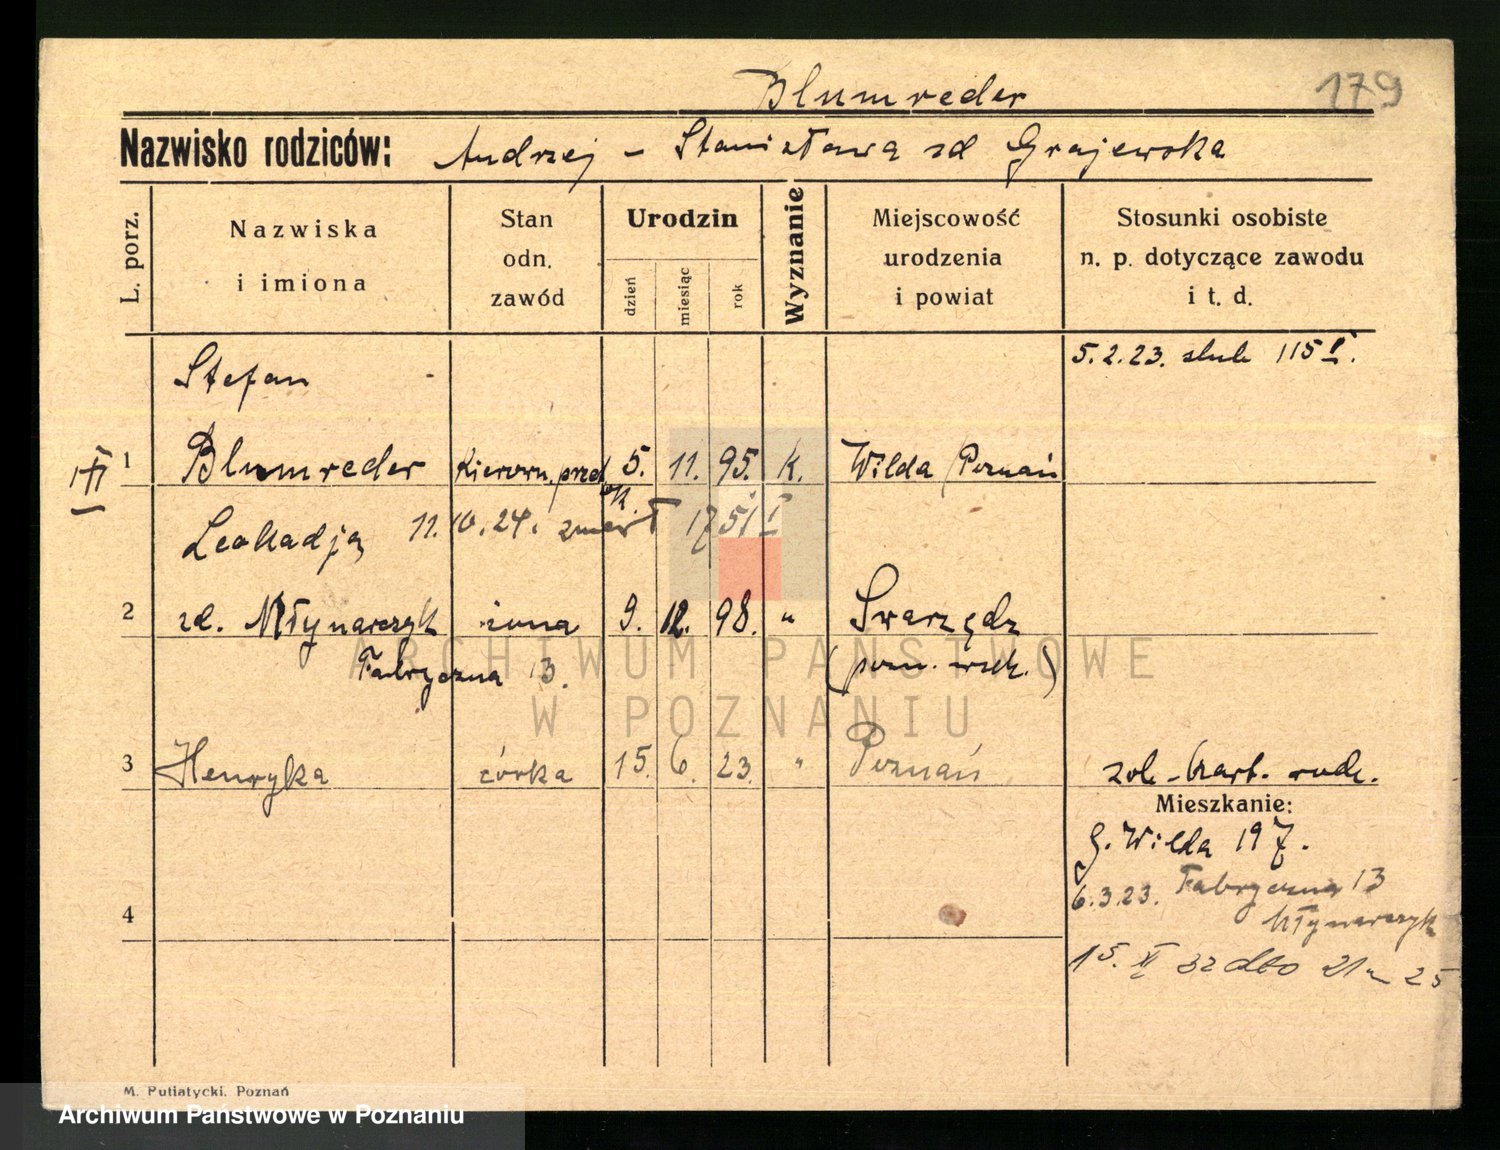 Blumreder
179
Nazwisko rodziców: Andrzej – Stanisława zd Grajewska
L. porz.
Nazwiska i imiona
Stan odn. zawód
Urodzin
dzień
miesiąc
rok
Wyznanie
Miejscowość urodzenia i powiat
Stosunki osobiste n. p. dotyczące zawodu i t. d.
5.2.23. slub 115 I.
Stefan
1 Blumreder Kierown. przed. 5. 11. 95. k. Wilda Poznań
III
Leokadja 11. 10. 24. zmarł I
2 zd. Młynarczyk żona 9. 12. 98. " Swarzędz
Fabryczna 13.
3 Henryka córka 15. 6. 23. " Poznań
zob. kart. rodz.
Mieszkanie:
G. Wilda 197.
6.3.23. Fabryczna 13
Młynarczyk
4
15. XI 32
M. Putiatycki. Poznań
ARCHIWUM PAŃSTWOWE
W POZNANIU
Archiwum Państwowe w Poznaniu